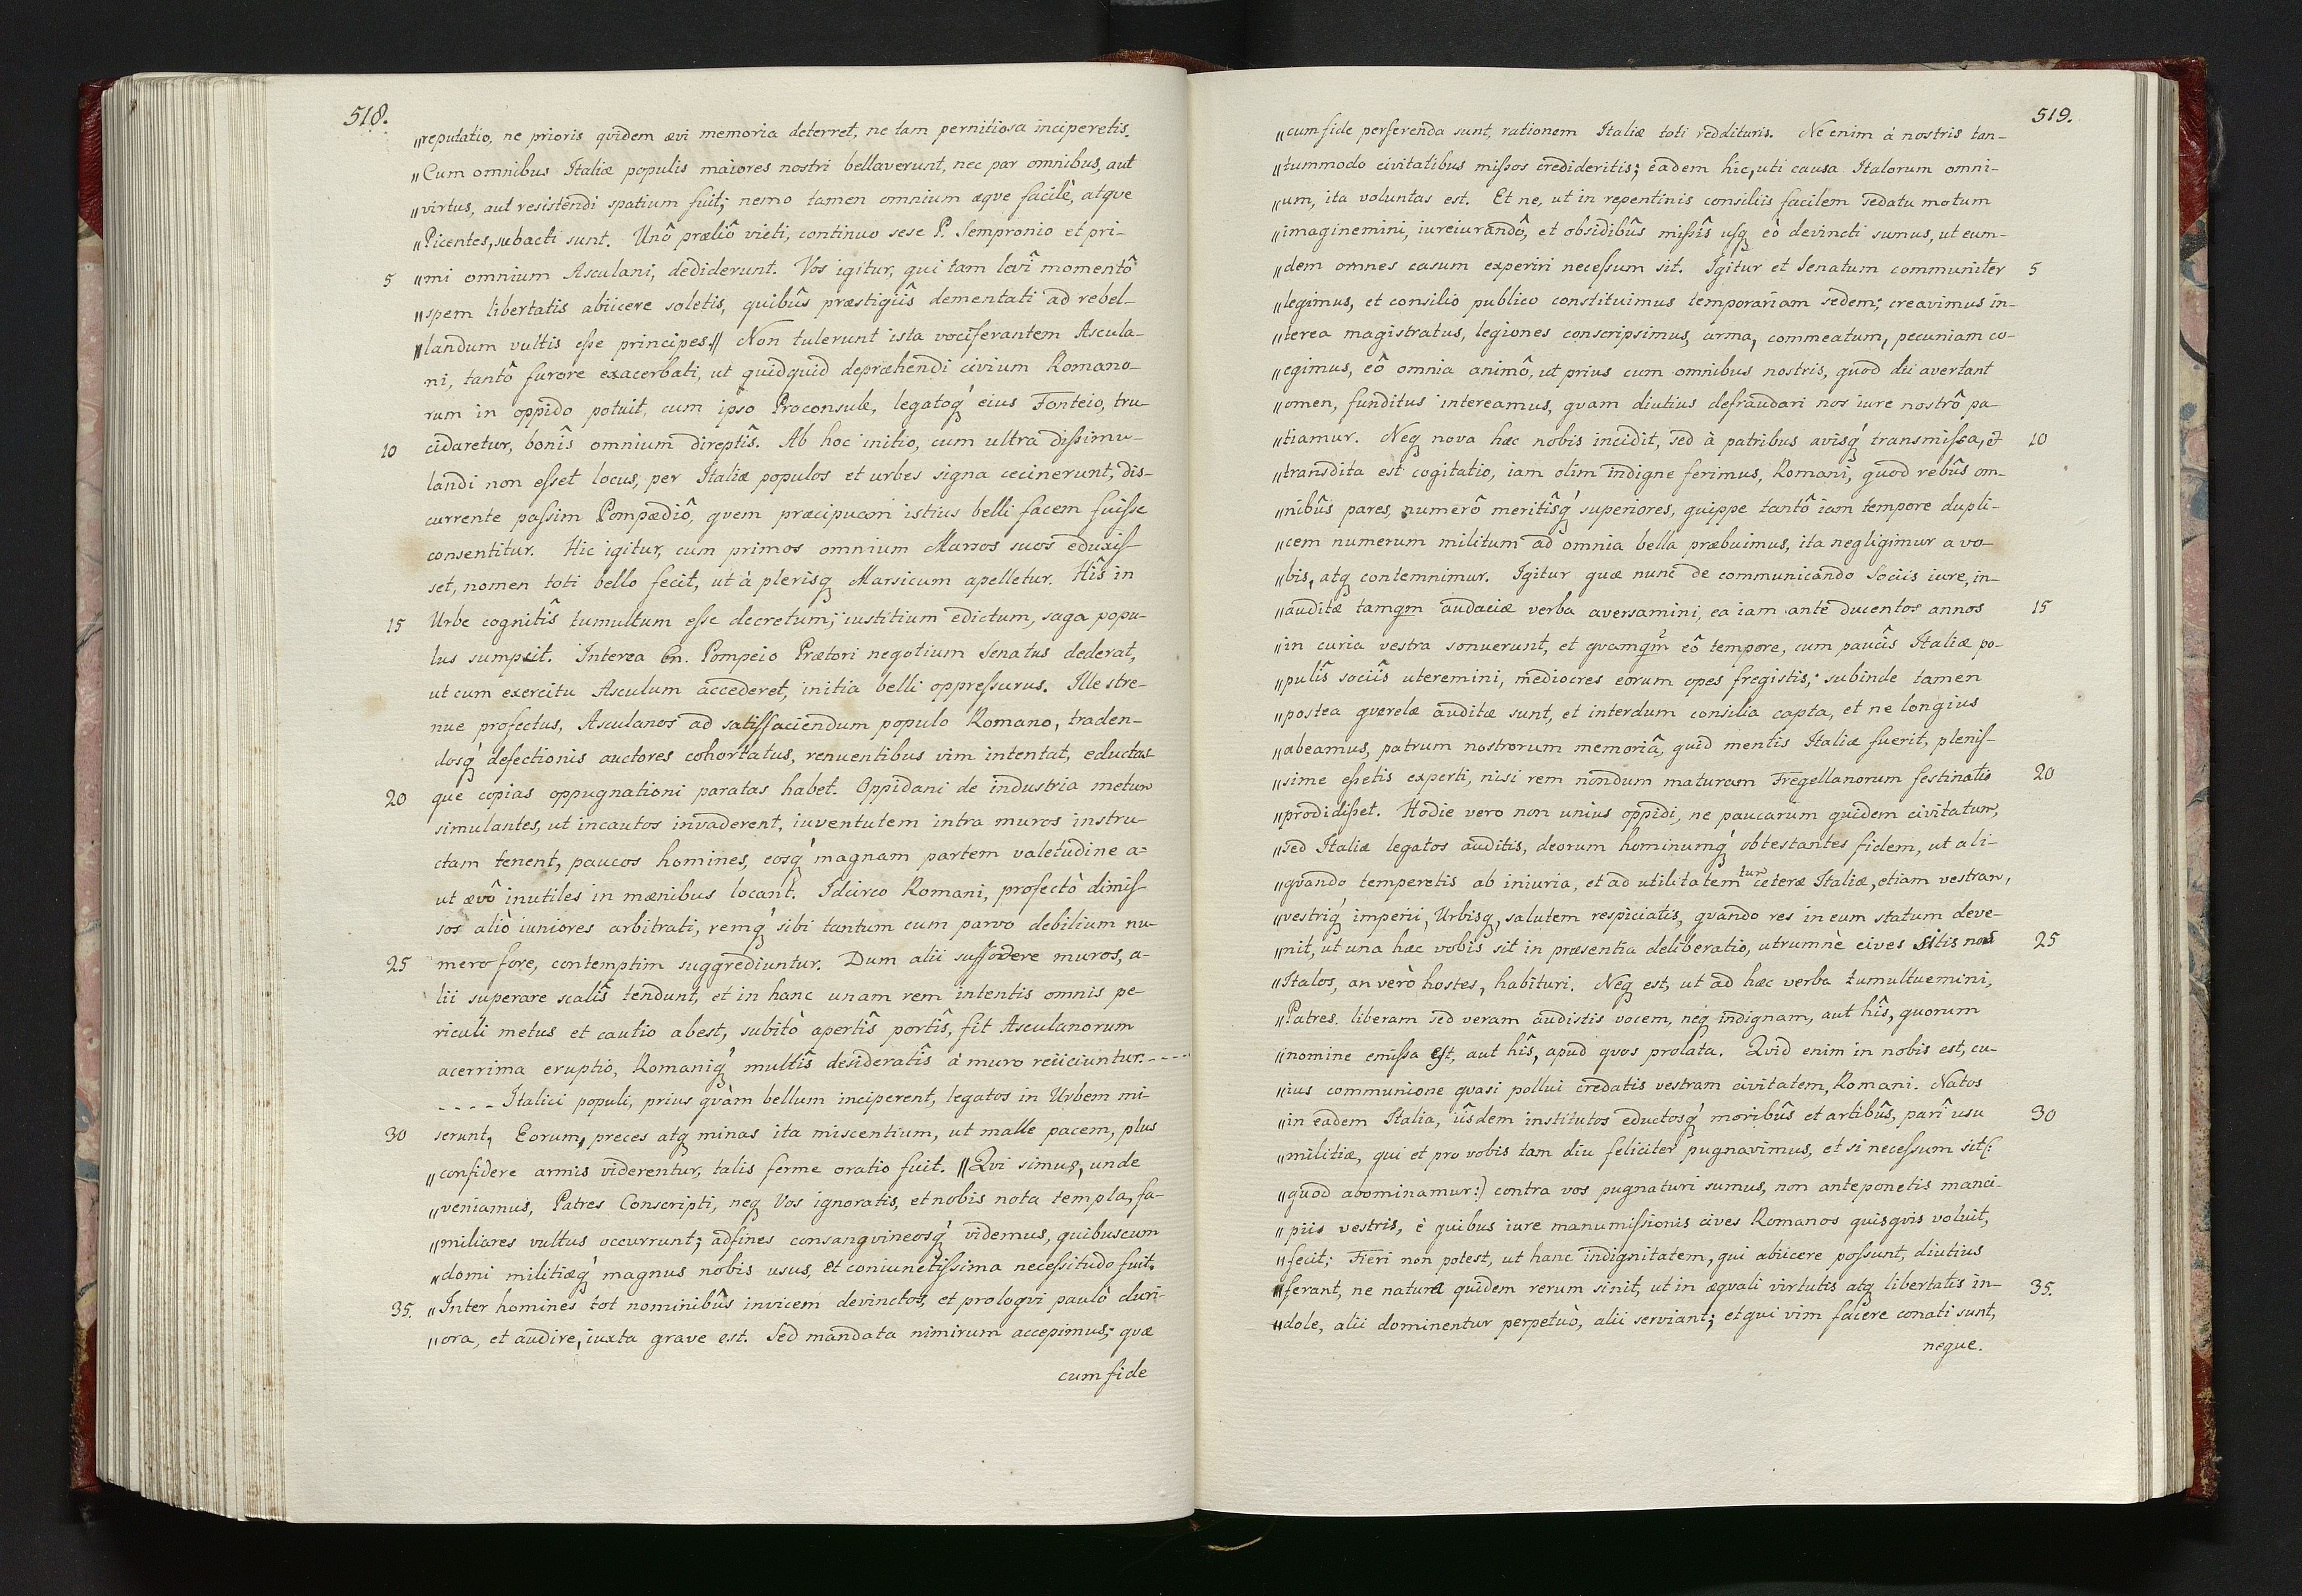 518.
„reputatio, ne prioris qvidem ævi memoria deterret, ne tam pernitiosa inciperetis.
„Cum omnibus Italiæ populis maiores nostri bellaverunt, nec par omnibus, aut
„virtus, aut resistendi spatium fuit; nemo tamen omnium æqve facilè, atqve
„Picentes, subacti sunt. Unô præliô victi, continuo sese P. Sempronio et pri-
5 „mi omnium Asculani, dediderunt. Vos igitur, qui tam levî momentô
„spem libertatis abiicere soletis, quibûs præstigiîs dementati ad rebel-
„landum vultis eſse principes.„ Non tulerunt ista vociferantem Ascula-
ni, tantô furore exacerbati, ut quidquid depræhendi civium Romano-
rum in oppido potuit, cum ipso Proconsule, legatoq́ eius Fonteio, tru-
10 cidaretur, bonîs omnium direptîs. Ab hoc initio, cum ultra diſsimu-
landi non eſset locus, per Italiæ populos et urbes signa cecinerunt, dis-
currente paſsim Pompædiô, qvem præcipuam istius belli facem fuiſse
consentitur. Hic igitur, cum primos omnium Marsos suos eduxiſ-
set, nomen toti bello fecit, ut à plerisq Marsicum apelletur. Hîs in
15 Urbe cognitîs tumultum eſse decretum; iustitium edictum, saga popu-
lus sumpsit. Interea Cn. Pompeio Prætori negotium Senatus dederat,
ut cum exercitu Asculum accederet, initia belli oppreſsurus. Ille stre-
nue profectus, Asculanos ad satisfaciendum populo Romano, traden-
dosq́ defectionis auctores cohortatus, renuentibus vim intentat, eductas-
20 que copias oppugnationi paratas habet. Oppidani de industria metum
simulantes, ut incautos invaderent, iuventutem intra muros instru-
ctam tenent, paucos homines, eosq́ magnam partem valetudine a=
ut ævô inutiles in mænibus locant. Idcirco Romani, profectò dimiſ-
sos aliò iuniores arbitrati, remq́ sibi tantum cum parvo debilium nu-
25 mero fore, contemptim suggrediuntur. Dum alii suffodere muros, a-
lii superare scalîs tendunt, et in hanc unam rem intentis omnis pe-
riculi metus et cautio abest, subitò apertîs portîs, fit Asculanorum
acerrima eruptio, Romaniq́ multîs desideratîs à muro reiiciuntur.----
---- Italici populi, prius qvàm bellum inciperent, legatos in Urbem mi-
30 serunt, Eorum, preces atq minas ita miscentium, ut malle pacem, plus
„confidere armis viderentur, talis ferme oratio fuit. „Qvi simus, unde
„veniamus, Patres Conscripti, neq Vos ignoratis, et nobis nota templa, fa-
„miliares vultus occurrunt; adfines consangvineosq́ videmus, quibuscum
„domi militiæq́ magnus nobis usus, et coniunctiſsima neceſsitudo fuit.
35. „Inter homines tot nominibûs invicem devinctos, et proloqvi paulò duri-
„ora, et audire, iuxta grave est. Sed mandata nimirum accepimus; quæ
cum fide
519.
„cum fide perferenda sunt, rationem Italiæ toti reddituris. Ne enim à nostris tan-
„tummodo civitatibus miſsos credideritis; eadem hic, uti causa Italorum omni-
„um, ita voluntas est. Et ne, ut in repentinis consiliis facilem sedatu motum
„imaginemini, iureiurandô, et obsidibûs miſsîs uſq eò devincti sumus, ut eum-
„dem omnes casum experiri neceſsum sit. Igitur et Senatum communiter 5
„legimus, et consilio publico constituimus temporariam sedem; creavimus in-
„terea magistratus, legiones conscripsimus, arma, commeatum, pecuniam co-
„egimus, eô omnia animô, ut prius cum omnibus nostris, quod dii avertant
„omen, funditus intereamus, qvam diutius defraudari nos iure nostrô pa-
„tiamur. Neq nova hæc nobis incidit, sed à patribus avisq́ transmiſsa, et 10
„transdita est cogitatio, iam olim indigne ferimus, Romani, quod rebûs om-
„nibûs pares, numerô meritîsq́ superiores, quippe tantô iam tempore dupli-
„cem numerum militum ad omnia bella præbuimus, ita negligimur a vo-
„bis, atq contemnimur. Igitur quæ nunc de communicando Sociis iure, in-
„auditæ tamqm audaciæ verba aversamini, ea iam ante ducentos annos 15
„in curia vestra sonuerunt, et qvamqm̃ eô tempore, cum paucîs Italiæ po-
„pulîs sociîs uteremini, mediocres eorum opes fregistis; subinde tamen
„postea qverelæ auditæ sunt, et interdum consilia capta, et ne longius
„abeamus, patrum nostrorum memoriâ, quid mentis Italiæ fuerit, pleniſ-
„sime eſsetis experti, nisi rem nondum maturam Fregellanorum festinatio 20
„prodidiſset. Hodie vero non unius oppidi, ne paucarum quidem civitatum,
„sed Italiæ legatos auditis, deorum hominumq́ obtestantes fidem, ut ali-
„qvando temperetis ab iniuria, et ad utilitatem tum ceteræ Italiæ, etiam vestram,
„vestriq́ imperii, Urbisq, salutem respiciatis, qvando res in eum statum deve-
„nit, ut una hæc vobis sit in præsentia deliberatio, utrumnè cives sitis nos 25
„Italos, an verò hostes, habituri. Neq est, ut ad hæc verba tumultuemini,
„Patres. liberam sed veram audistis vocem, neq indignam, aut hîs, quorum
„nomine emiſsa est, aut hîs, apud qvos prolata. Qvid enim in nobis est, cu-
„ius communione qvasi pollui credatis vestram civitatem, Romani. Natos
„in eadem Italia, iîsdem institutos eductosq́ moribûs et artibûs, parî usu 30
„militiæ, qui et pro vobis tam diu feliciter pugnavimus, et si neceſsum sit(:
„quod abominamur:) contra vos pugnaturi sumus, non anteponetis manci-
„piis vestris, è quibus iure manumiſsionis cives Romanos quisqvis voluit,
„fecit; Fieri non potest, ut hanc indignitatem, qui abiicere poſsunt, diutius
„ferant, ne natura quidem rerum sinit, ut in æqvali virtutis atq libertatis in- 35.
„dole, alii dominentur perpetuò, alii serviant; et qui vim facere conati sunt,
neque.